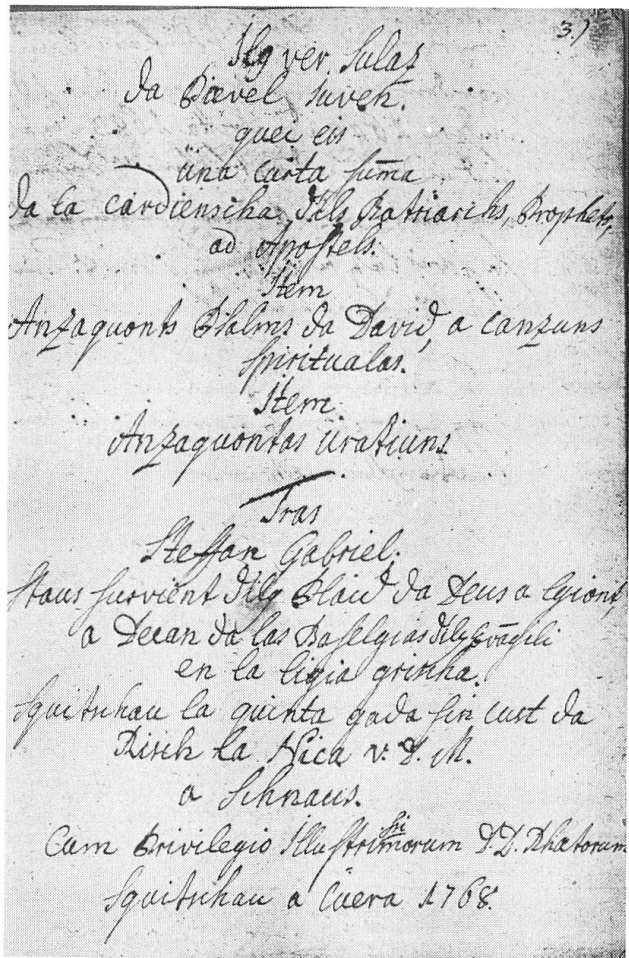 3.)
Ilg ver Sulaz
da Pievel Giuven.
quei eis
üna curta summa
da la Cardienscha dils Patriarchs, Prophets,
ad Apostels.
Item
Anzaquonts Psalms da David, a canzuns
Spiritualas.
Item
Anzaquontas uratiuns.
Tras
Steffan Gabriel.
staus survient dilg Plaid da Deus a Glion,
a Decan da las Baselgias dilg Evãgeli
en la Ligia grischa.
Squitschau la quinta gada sin cust da
Risch la Nica v. D. M.
a Schnaus.
Cum Privilegio Illustrissimorum D. D. Rhætorum
Squitschau a Cuera 1768.